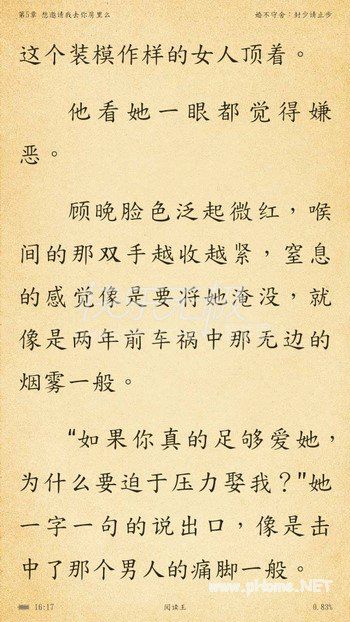 第5章 想邀请我去你房里么 婚不守舍：封少请止步
这个装模作样的女人顶着。
他看她一眼都觉得嫌
恶。
顾晚脸色泛起微红，喉
间的那双手越收越紧，窒息
的感觉像是要将她淹没，就
像是两年前车祸中那无边的
烟雾一般。
“如果你真的足够爱她，
为什么要迫于压力娶我？”她
一字一句的说出口，像是击
中了那个男人的痛脚一般。
www.pHome.NET
16:17 阅读王 0.83%